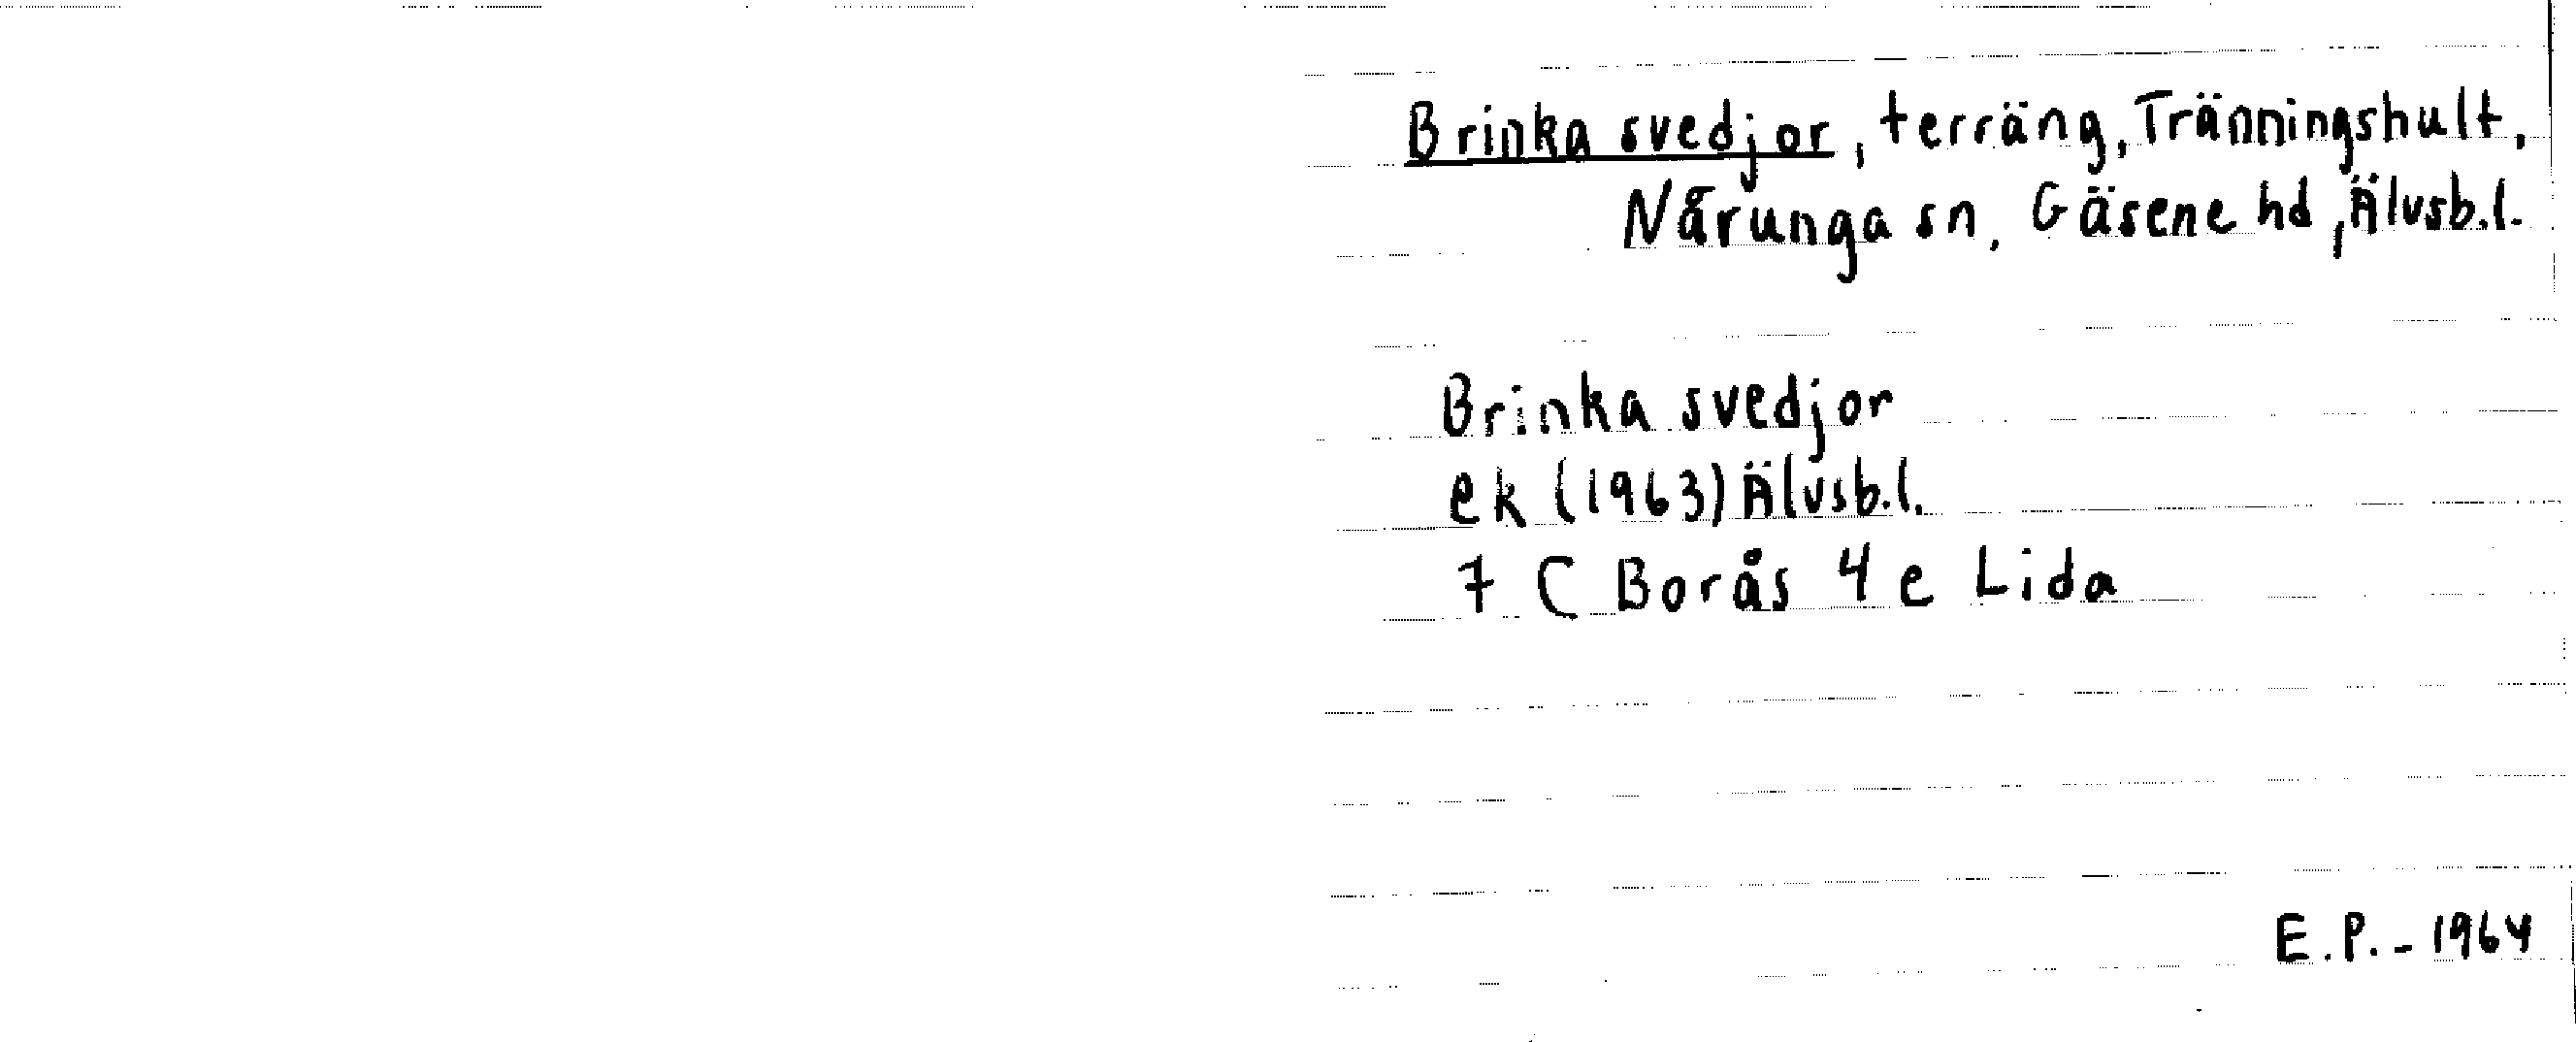 Brinka svedjor, terräng, Tränningshult,
Nårunga sn, Gäsene hd, Älvsb.l.
Brinka svedjor
ek (1963) Älvsb.l.
7 C Borås 4 e Lida
E.P. - 1964